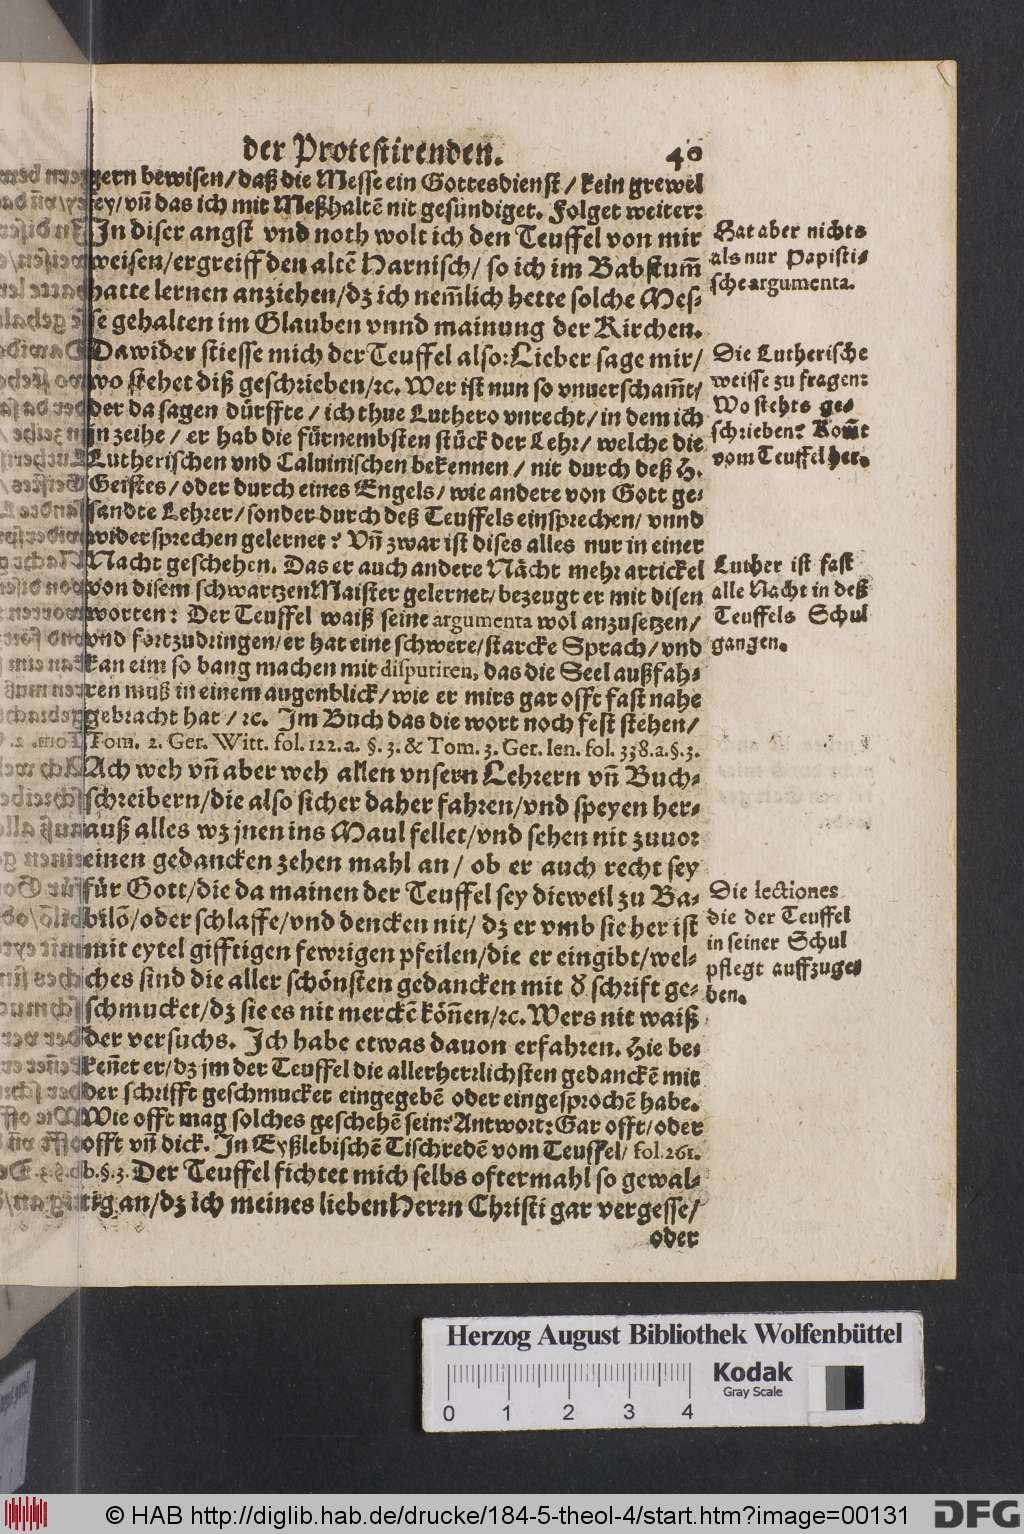 der Protestirenden. 40
gern bewisen/daß die Messe ein Gottesdienst/ kein grewel
sey/vñ das ich mit Meßhaltē nit gesündiget. Folget weiter:
In diser angst vnd noth wolt ich den Teuffel von mir
weisen/ergreiff den altē Harnisch/ so ich im Babstum̃
hatte lernen anziehen/dz ich nem̃lich hette solche Mes-
se gehalten im Glauben vnnd mainung der Kirchen.
Dawider stiesse mich der Teuffel also: Lieber sage mir/
wo stehet diß geschrieben/ꝛc. Wer ist nun so vnuerscham̃t/
der da sagen dürffte/ ich thue Luthero vnrecht/in dem ich
jn zeihe/ er hab die fürnembsten stück der Lehr/ welche die
Lutherischen vnd Caluinischen bekennen/ nit durch deß H.
Geistes/oder durch eines Engels/wie andere von Gott ge-
sandte Lehrer/sonder durch deß Teuffels einsprechen/ vnnd
widersprechen gelernet? Vñ zwar ist dises alles nur in einer
Nacht geschehen. Das er auch andere Nächt mehr artickel
von disem schwartzen Maister gelernet/bezeugt er mit disen
worten: Der Teuffel waiß seine argumenta wol anzusetzen/
vnd fortzudringen/er hat eine schwere/starcke Sprach/vnd
kan eim so bang machen mit disputiren, das die Seel außfah-
ren muß in einem augenblick/wie er mirs gar offt fast nahe
gebracht hat/ ꝛc. Im Buch das die wort noch fest stehen/
Tom. 2. Ger. Witt. fol. 122.a. §. 3. & Tom. 3. Ger. Ien. fol. 338.a.§.3.
Ach weh vñ aber weh allen vnsern Lehrern vñ Buch-
schreibern/die also sicher daher fahren/vnd speyen her-
auß alles wz jnen ins Maul fellet/vnd sehen nit zuuor
einen gedancken zehen mahl an/ ob er auch recht sey
für Gott/die da mainen der Teuffel sey dieweil zu Ba-
bilō/oder schlaffe/vnd dencken nit/ dz er vmb sie her ist
mit eytel gifftigen fewrigen pfeilen/die er eingibt/wel-
ches sind die aller schönsten gedancken mit ð schrift ge-
schmucket/dz sie es nit merckē köñen/ꝛc. Wers nit waiß
der versuchs. Ich habe etwas dauon erfahren. Hie be-
keñet er/dz jm der Teuffel die allerherrlichsten gedanckē mit
der schrifft geschmucket eingegebē oder eingesprochē habe.
Wie offt mag solches geschehē sein? Antwort: Gar offt/oder
offt vñ dick. In Eyßlebischē Tischredē vom Teuffel/ fol.261.
b.§.3. Der Teuffel fichtet mich selbs oftermahl so gewal-
tig an/dz ich meines lieben Herrn Christi gar vergesse/
oder
Hat aber nichts
als nur Papisti-
sche argumenta.
Die Lutherische
weisse zu fragen:
Wo stehts ge-
schrieben? Kom̃t
vom Teuffel her.
Luther ist fast
alle Nacht in deß
Teuffels Schul
gangen.
Die lectiones
die der Teuffel
in seiner Schul
pflegt auffzuge-
ben.
Herzog August Bibliothek Wolfenbüttel
Kodak
Gray Scale
0 1 2 3 4
© HAB http://diglib.hab.de/drucke/184-5-theol-4/start.htm?image=00131
DFG